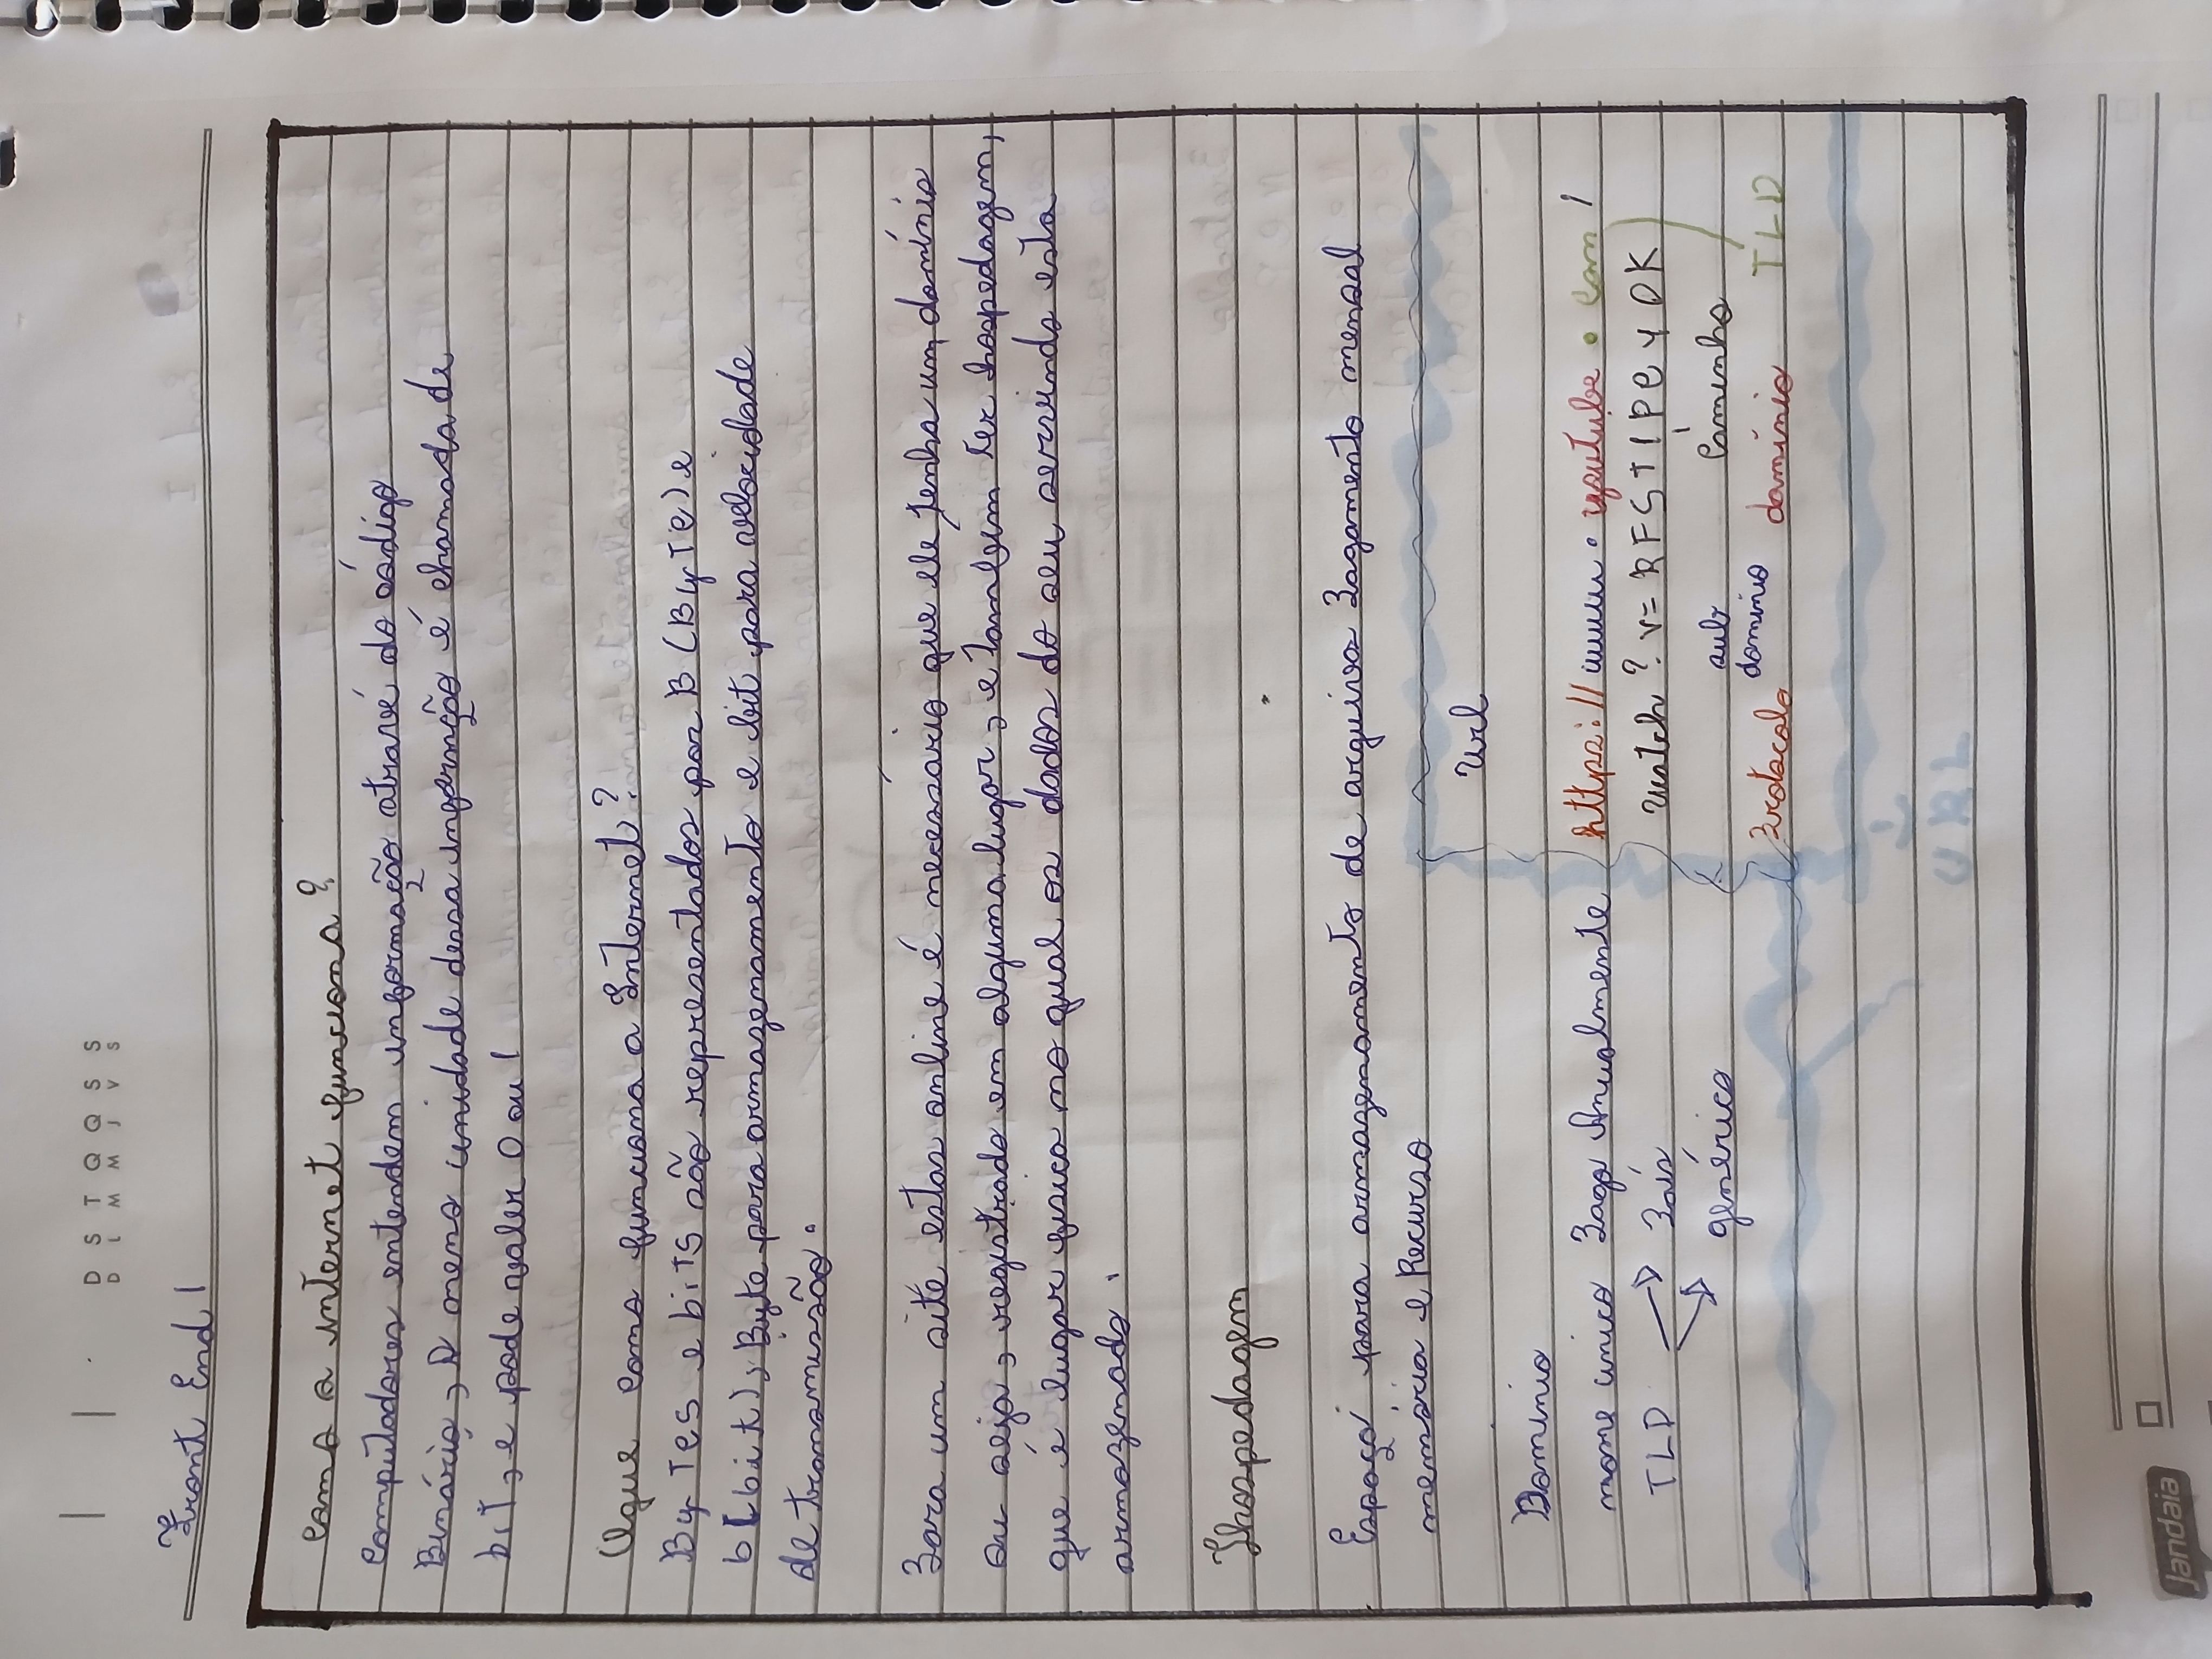 D S T Q Q S S
D L M M J V S
Front End 1
Como a internet funciona?
Computadores entendem informação atravé do código
Binário, A meno unidade dessa informção é chamada de
bit, e pode valer 0 ou 1
Oque como funciona a Internet?
Bytes e bits são representados por B (Byte) e
b(bit), Byte para armazenamento e bit para velocidade
de transmissão.
Para um site estar online é necessário que ele tenha um domínio
ou seja, registrado em alguma lugar, e também ter hospedagem,
que é lugar fisico no qual os dados do seu servindo esta
armazenado.
Hospedagem
Espaço para armazenamento de arquivos Pagamento mensal
memória e Recurso
Url
Dominio
nome unico Pago Anualmente
https://www.youtube.com/
TLD País
watch?v=RFST1PCYOK
genérico
sub Caminho
dominio
Protocolo domínio TLD
URL
Jandaia